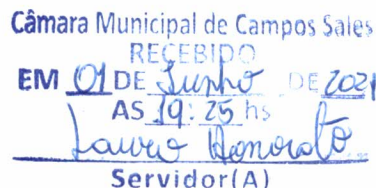 Câmara Municipal de Campos Sales
RECEBIDO
EM 01 DE Junho DE 2021
AS 19:25 hs
Lauro Honorato
Servidor(A)